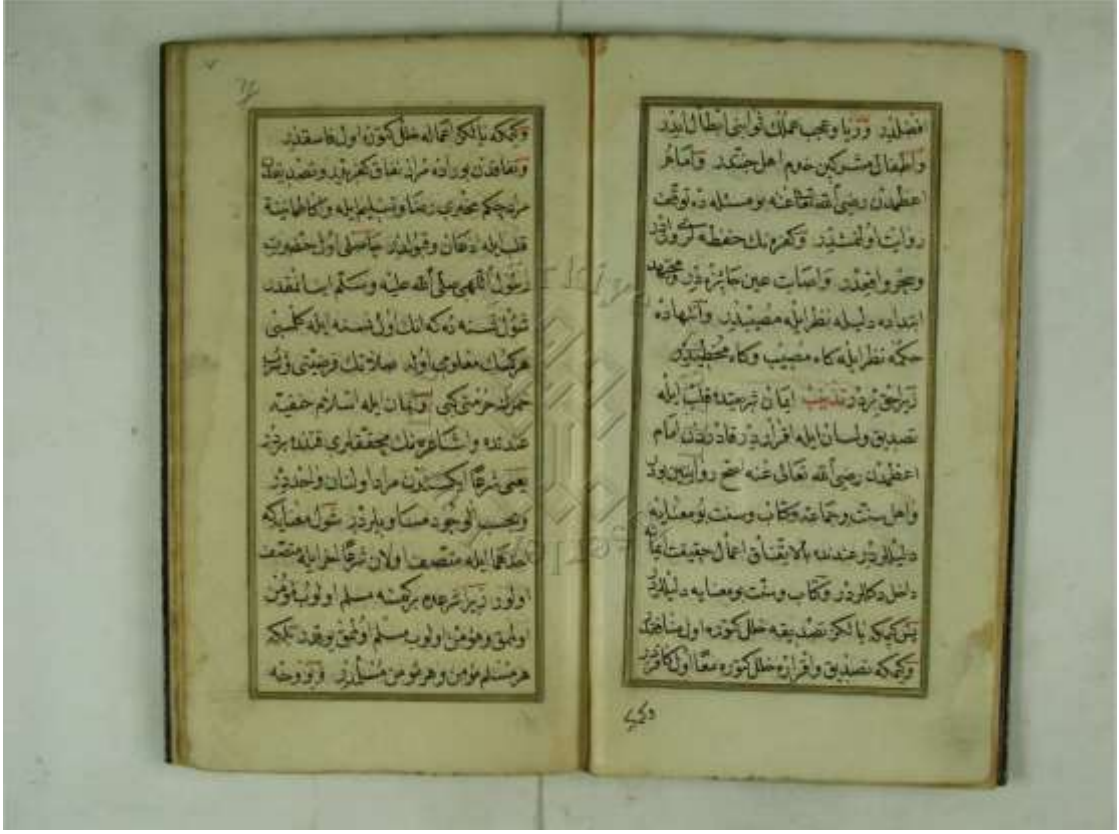 افضلدر وریا وعجب عملك ثوابنی ابطال ایدر
واطفال مشركین خدم اهل جنتدر وامام
اعظمدن رضی الله تعالی عنه بو مسئله ده توقف
روایت اولنمشدر وكفره نك حفظه لری واردر
وسحر واقعدر واصابت عین جائزه در ومجتهد
ابتداده دلیله نظرایله مصیبدر وانتهاده
حكمه نظرایله كاه مصیب وكاه مخطیدر
زیرا حق بردر تذنیب ایمان شرعیده قلب ایله
تصدیق ولسان ایله اقراردر قادر اولان امام
اعظمدن رضی الله تعالی عنه اصح روایتین ودر
واهل سنت وجماعته وكتاب وسنت بو معنایه
دلیللردر عندنده بالاتفاق اعمال حقیقت ایمانه
داخل دكلردر وكتاب وسنت بو معنایه دلیللردر
پس كیمكه یالكز تصدیقه خلل كتوره اول منافقدر
وكیمكه تصدیق واقراره خلل كتوره معا اول كافردر
وكیمكه
وكیمكه یالكز اعماله خلل كتوره اول فاسقدر
ونفاقدن بوراده مراد نفاق كفریدر وتصدیقدن
مراد حكم مخبری رضا وتسلیم ایله وطمانینة
قلب ایله اذعان وقبولدر حاصلی اول حضرت
رسول اللهی صلی الله علیه وسلم اینانمقدر
شول نسنه ده كه انك اول نسنه ایله كلمسنی
هركسك معلومی اولد صلاتك فرضیتی وشرب
خمرك حرمتی كبی وایمان ایله اسلام حنفیه
عندنده واشاعره نك محققلری قتنده بردر
یعنی شرعا ایكسندن مراد اولنان واحددر
وبحسب الوجود مساویلردر شول معنایله كه
احدهما ایله متصف اولان شرعا اخر ایله متصف
اولور زیرا شرعده بر كمسنه مسلم اولوب مؤمن
اولمق ومؤمن اولوب مسلم اولمق یوقدر بلكه
هر مسلم مؤمن وهر مؤمن مسلمدر